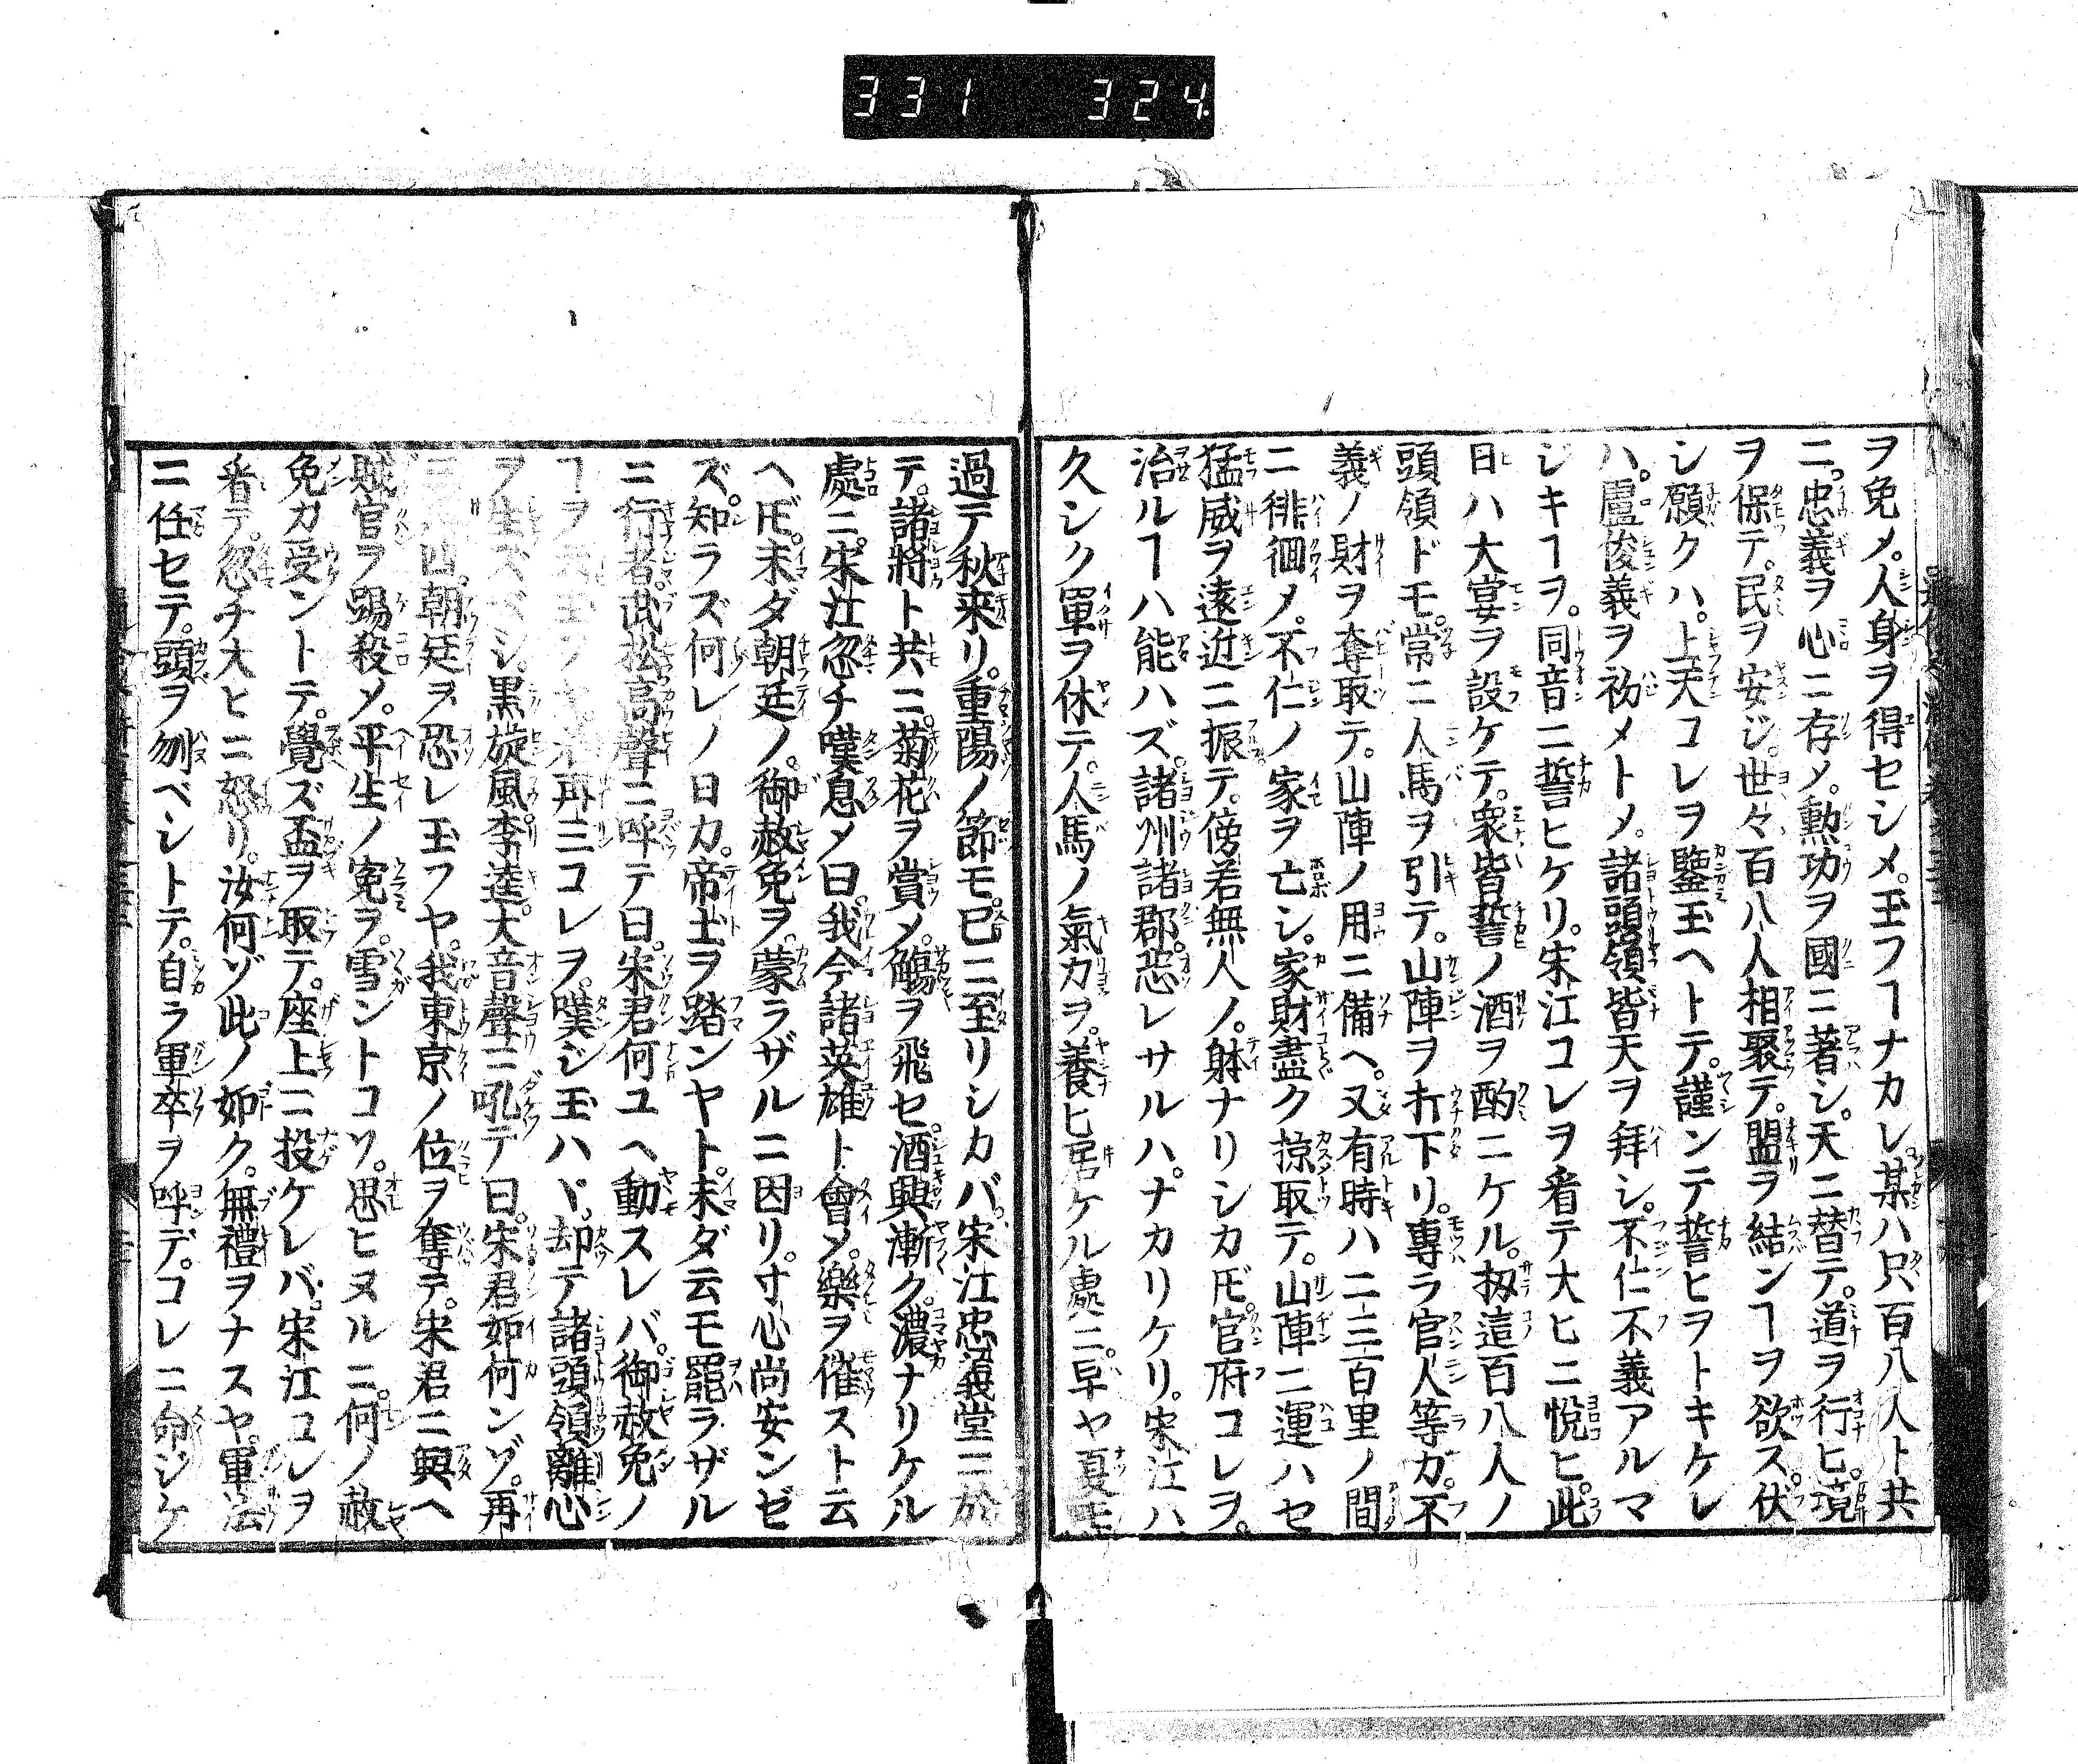 331 324
ヲ免メ。人身ヲ得セシメ。玉フヿナカレ。某ハ只百八人ト共
ニ。忠義ヲ心ニ存メ。勲功ヲ國ニ著シ。天ニ替テ。道ヲ行ヒ。境
ヲ保テ。民ヲ安ジ。世々百八人相聚テ。盟ヲ結ンヿヲ欲ス。伏
シ願クハ。上天コレヲ鑒玉ヘトテ。謹ンテ誓ヒヲトキケレ
ハ。盧俊義ヲ初メトメ。諸頭領皆天ヲ拜シ。不仁不義アルマ
ジキヿヲ。同音ニ誓ヒケリ。宋江コレヲ看テ大ヒニ悦ヒ。此
日ハ大宴ヲ設ケテ。衆皆誓ノ酒ヲ酌ニケル。扨這百八人ノ
頭領ドモ。常ニ人馬ヲ引テ。山陣ヲ打下リ。專ラ官人等ガ。不
義ノ財ヲ奪取テ。山陣ノ用ニ備ヘ。又有時ハ二三百里ノ間
ニ徘徊メ。不仁ノ家ヲ亡シ。家財盡ク掠取テ。山陣ニ運ハセ
猛威ヲ遠近ニ振テ。傍若無人ノ。躰ナリシカ𪜈。官府コレヲ。
治ルヿハ能ハズ。諸州諸郡。恐レサルハ。ナカリケリ。宋江ハ
久シク軍ヲ休テ。人馬ノ氣力ヲ。養ヒ居ケル處ニ。早ヤ夏モ
過テ秋来リ。重陽ノ節モ。已ニ至リシカバ。宋江忠義堂ニ於
テ。諸將ト共ニ。菊花ヲ賞メ。觴ヲ飛セ酒興漸ク。濃ナリケル
處ニ。宋江忽チ嘆息メ曰。我今諸英雄ト會メ。樂ヲ催ストス云
ヘ𪜈。未ダ朝廷ノ。御赦免ヲ。蒙ラザルニ因リ。寸心尚安ンゼ
ズ。知ラズ何レノ日カ。帝土ヲ踏ンヤト。未ダ云モ罷ラザル
ニ行者武松高聲ニ呼テ曰。宋君何ユヘ動スレバ。御赦免ノ
ヿヲ 玉フヤ。 再三コレヲ。嘆ジ玉ハヾ。却テ諸頭領離心
ヲ生ズベシ。黒旋風李逵。大音聲ニ吼テ曰。宋君如何ンゾ。再
三 朝廷ヲ恐レ玉フヤ。我東京ノ位ヲ奪テ。宋君ニ與ヘ
賊官ヲ踢殺メ。平生ノ寃ヲ。雪ントコソ。思ヒヌルニ。何ノ赦
免カ受ントテ。覺ズ盃ヲ取テ。座上ニ投ケレバ。宋江コレヲ
看テ。忽チ大ヒニ怒リ。汝何ゾ此ノ如ク。無禮ヲナスヤ。軍法
ニ任セテ。頭ヲ刎ベシトテ。自ラ軍卒ヲ呼デ。コレニ命ジケ